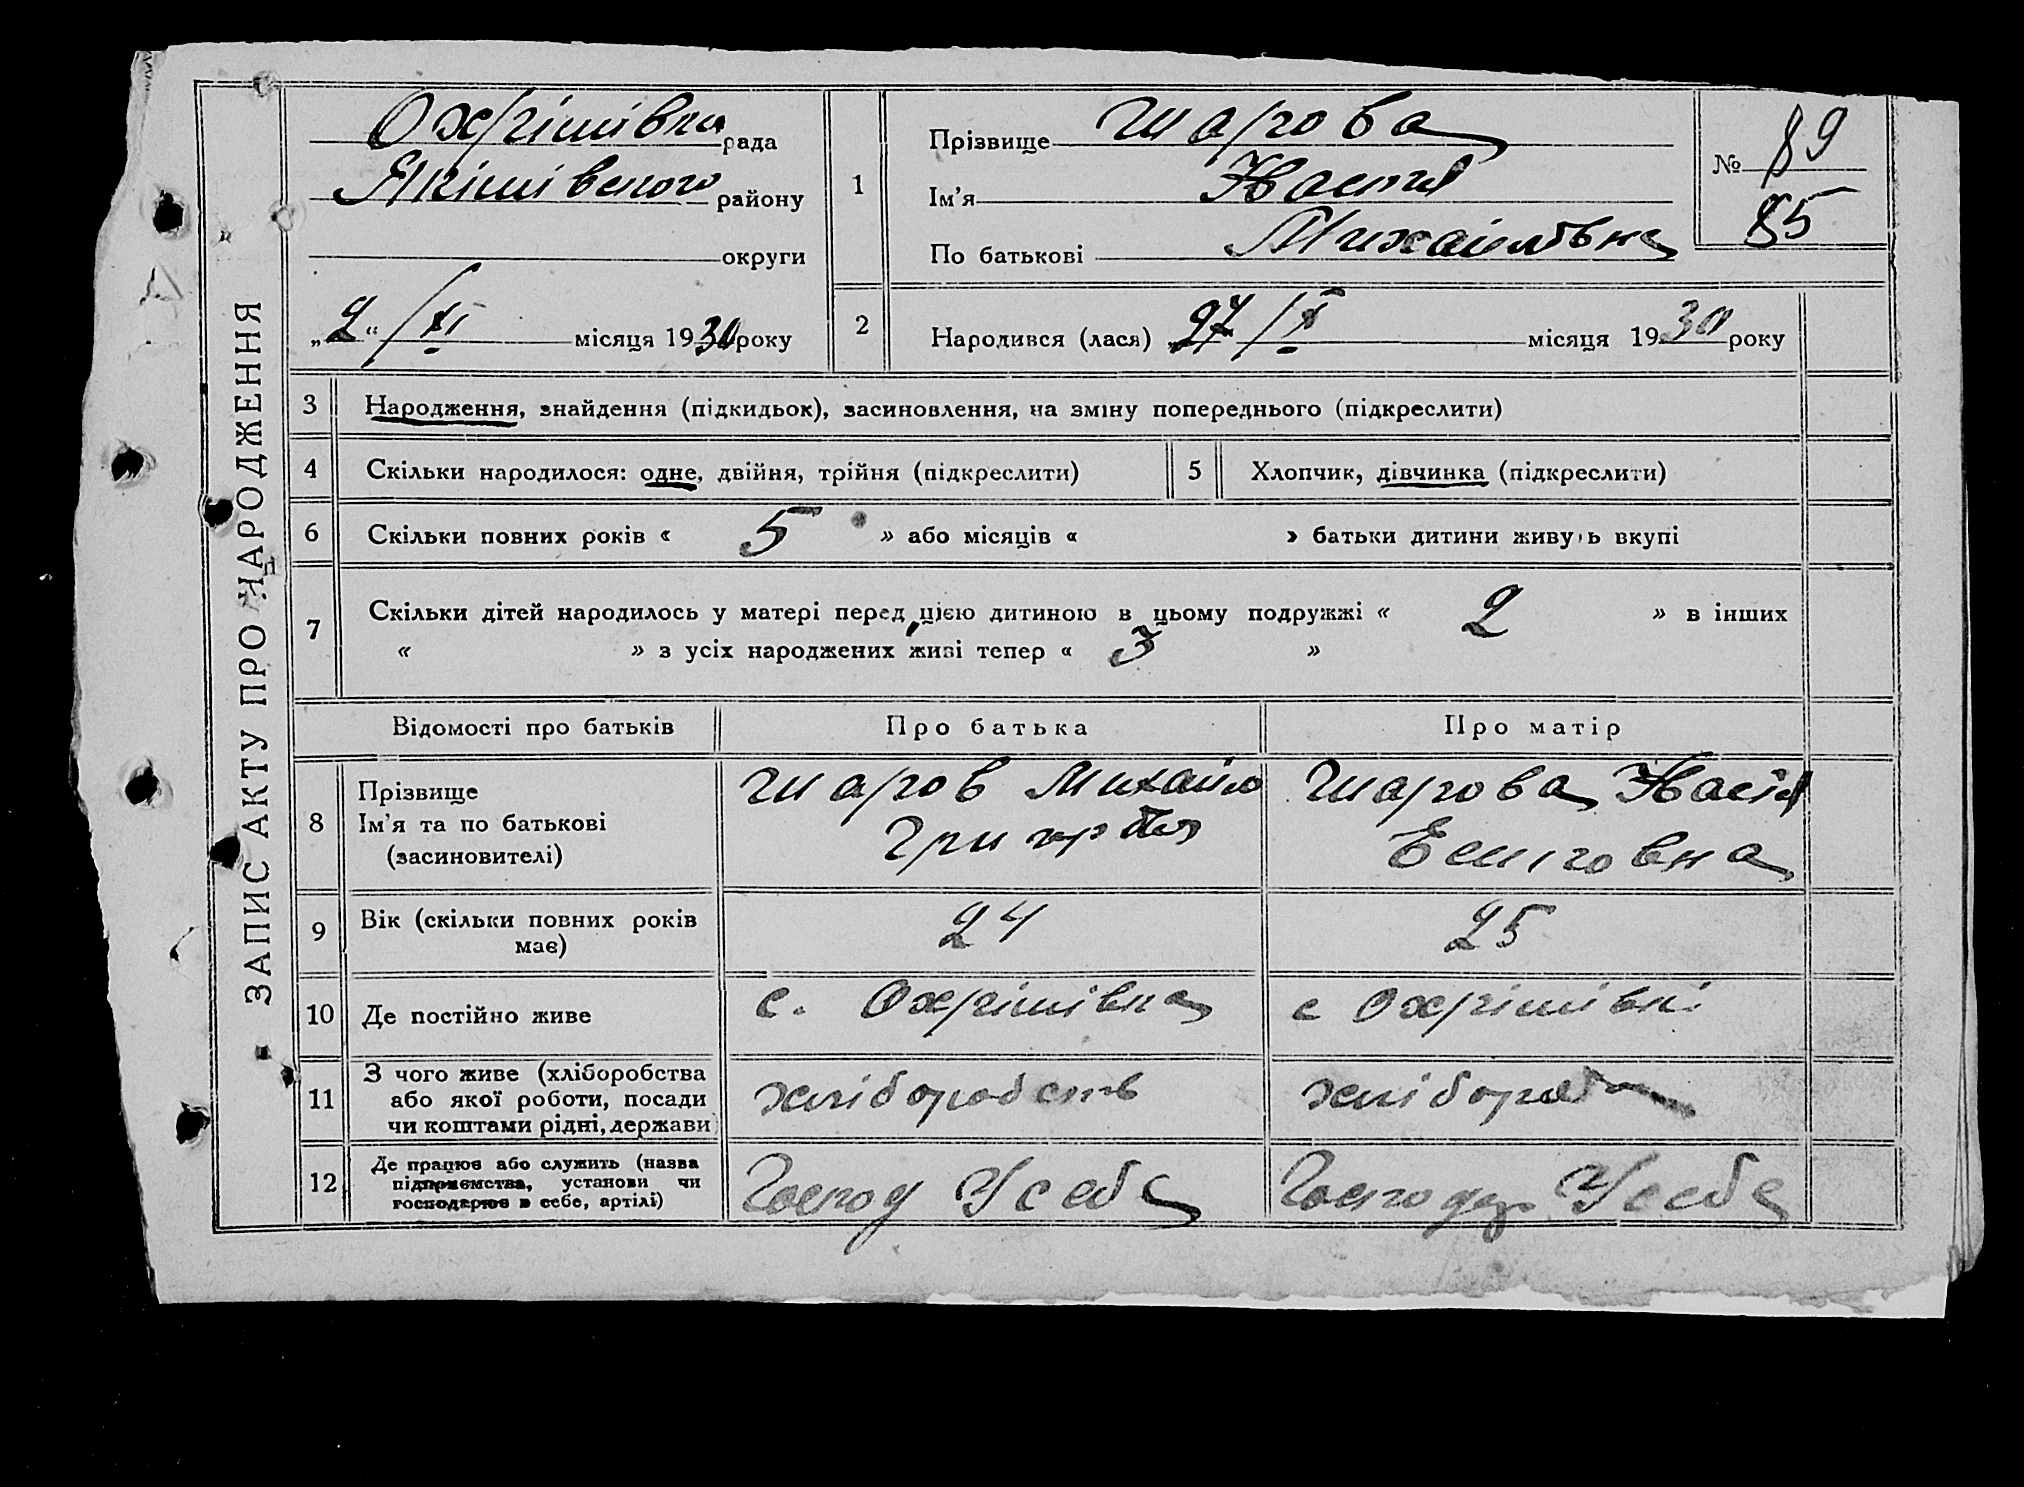 ЗАПИС АКТУ ПРО НАРОДЖЕННЯ
Охрімівка рада
Якімівського району
округи
„2“ /XI місяця 1930 року
1
Прізвище Шарова
Ім’я Настя
По батькові Михайлівна
№ 89
85
2
Народився (лася) „27“ /X місяця 1930 року
3 Народження, знайдення (підкидьок), засиновлення, на зміну попереднього (підкреслити)
4 Скільки народилося: одне, двійня, трійня (підкреслити)
5 Хлопчик, дівчинка (підкреслити)
6 Скільки повних років « 5 » або місяців « » батьки дитини живуть вкупі
7 Скільки дітей народилось у матері перед цією дитиною в цьому подружжі « 2 » в інших
« » з усіх народжених живі тепер « 3 »
Відомості про батьків Про батька Про матір
8 Прізвище
Ім’я та по батькові
(засиновителі)
Шаров Михайло
Шарова Настя
9 Вік (скільки повних років
має)
24
25
10 Де постійно живе
с. Охрімівка
с Охрімівкі
11 З чого живе (хліборобства
або якої роботи, посади
чи коштами рідні, держави
хліборобств
12 Де працює або служить (назва
підприємства, установи чи
господарює в себе, артілі)
Господ У себе
Господар У себе